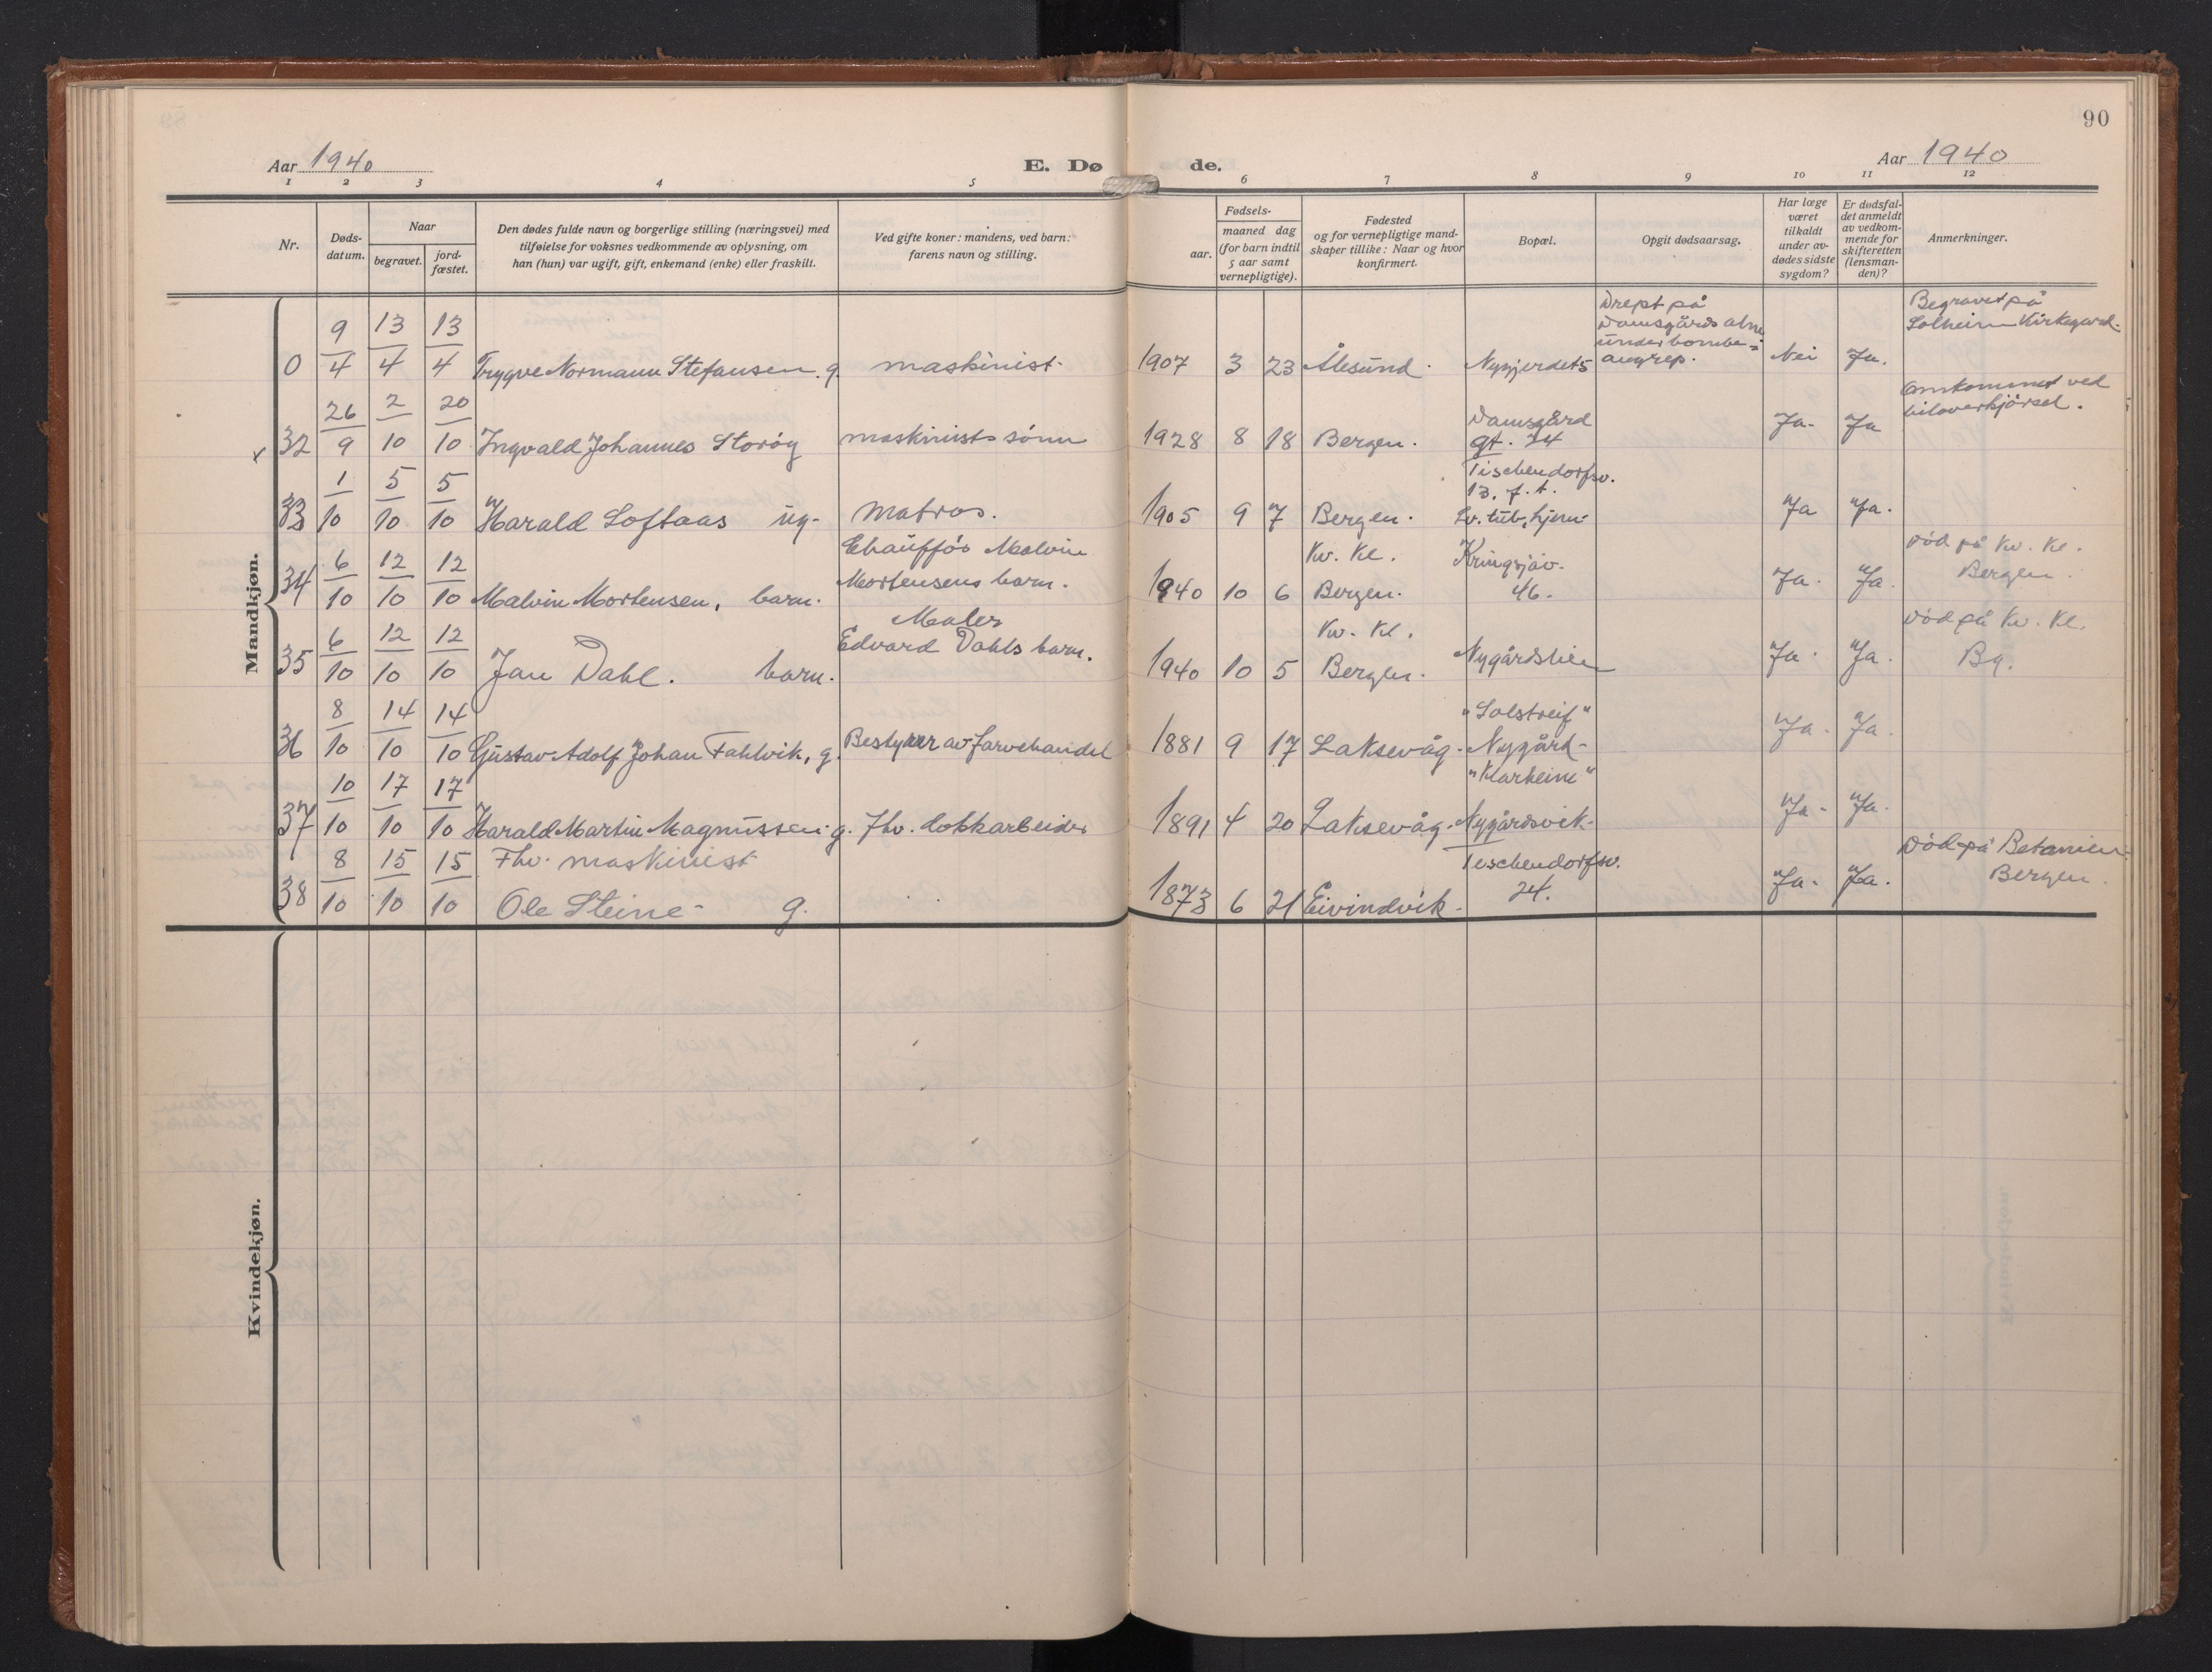 90
Aar 1940
E. Dø de.
Aar 1940
1 2 3 4 5 6 7 8 9 10 11 12
Nr.
Døds-
datum.
Naar
begravet.
jord-
fæstet.
Den dødes fulde navn og borgerlige stilling (næringsvei) med
tilføielse for voksnes vedkommende av oplysning, om
han (hun) var ugift, gift, enkemand (enke) eller fraskilt.
Ved gifte koner: mandens, ved barn:
farens navn og stilling.
Fødsels-
aar.
maaned dag
(for barn indtil
5 aar samt
vernepligtige).
Fødested
og for vernepligtige mand-
skaper tillike: Naar og hvor
konfirmert.
Bopæl.
Opgit dødsaarsag.
Har læge
været
tilkaldt
under av-
dødes sidste
sygdom?
Er dødsfal-
det anmeldt
av vedkom-
mende for
skifteretten
(lensman-
den)?
Anmerkninger.
Mandkjøn.
0 9/4 13/4 13/4 Trygve Normann Stefansen. g. maskinist. 1907 3 23 Ålesund.
Drept på
Damsgårds alm
under bombe-
angrep.
Nei Ja.
Begravet på
Solheim Kirkegard.
x 32 26/9 2/10 20/10 Ingvald Johannes Storøy maskinists sønn 1928 8 18 Bergen.
Damsgård
gt. 24
Ja- Ja
Omkommet ved
biloverkjørsel.
33 1/10 5/10 5/10 Harald Loftaas ug- Matros. 1905 9 7 Bergen.
Tischendorfsv.
13. f. t.
Lv. tub. hjem-
Ja Ja.
34 6/10 12/10 12/10 Malvin Mortensen, barn.
Chauffør Malvin
Mortensens barn.
1940 10 6
Kv. Kl.
Bergen.
Kringsjåv.
46.
Ja. Ja.
Død på Kv. Kl.
Bergen.
35 6/10 12/10 12/10 Jan Dahl. barn.
Maler
Edvard Dahls barn.
1940 10 5
Kv. Kl.
Bergen.
Nygårdslien
Ja. Ja.
Død på Kv. Kl.
Bg.
36 8/10 14/10 14/10 Gustav Adolf Johan Fahlvik, g. Bestyrer av farvehandel 1881 9 17 Laksevåg-
"Solstreif"
Nygård-
Ja- Ja.
37 10/10 17/10 17/10 Harald Martin Magnussen- g. Fhv. dokkarbeider 1891 4 20 Laksevåg-
"Klarheim"
Nygårdsvik-
Ja- Ja.
38 8/10 15/10 15/10
Fhv. maskinist
Ole Steine- g.
1873 6 21 Eivindvik-
Tischendorfsv.
24.
Ja- Ja.
Død på Betanien.
Bergen.
Kvindekjøn.